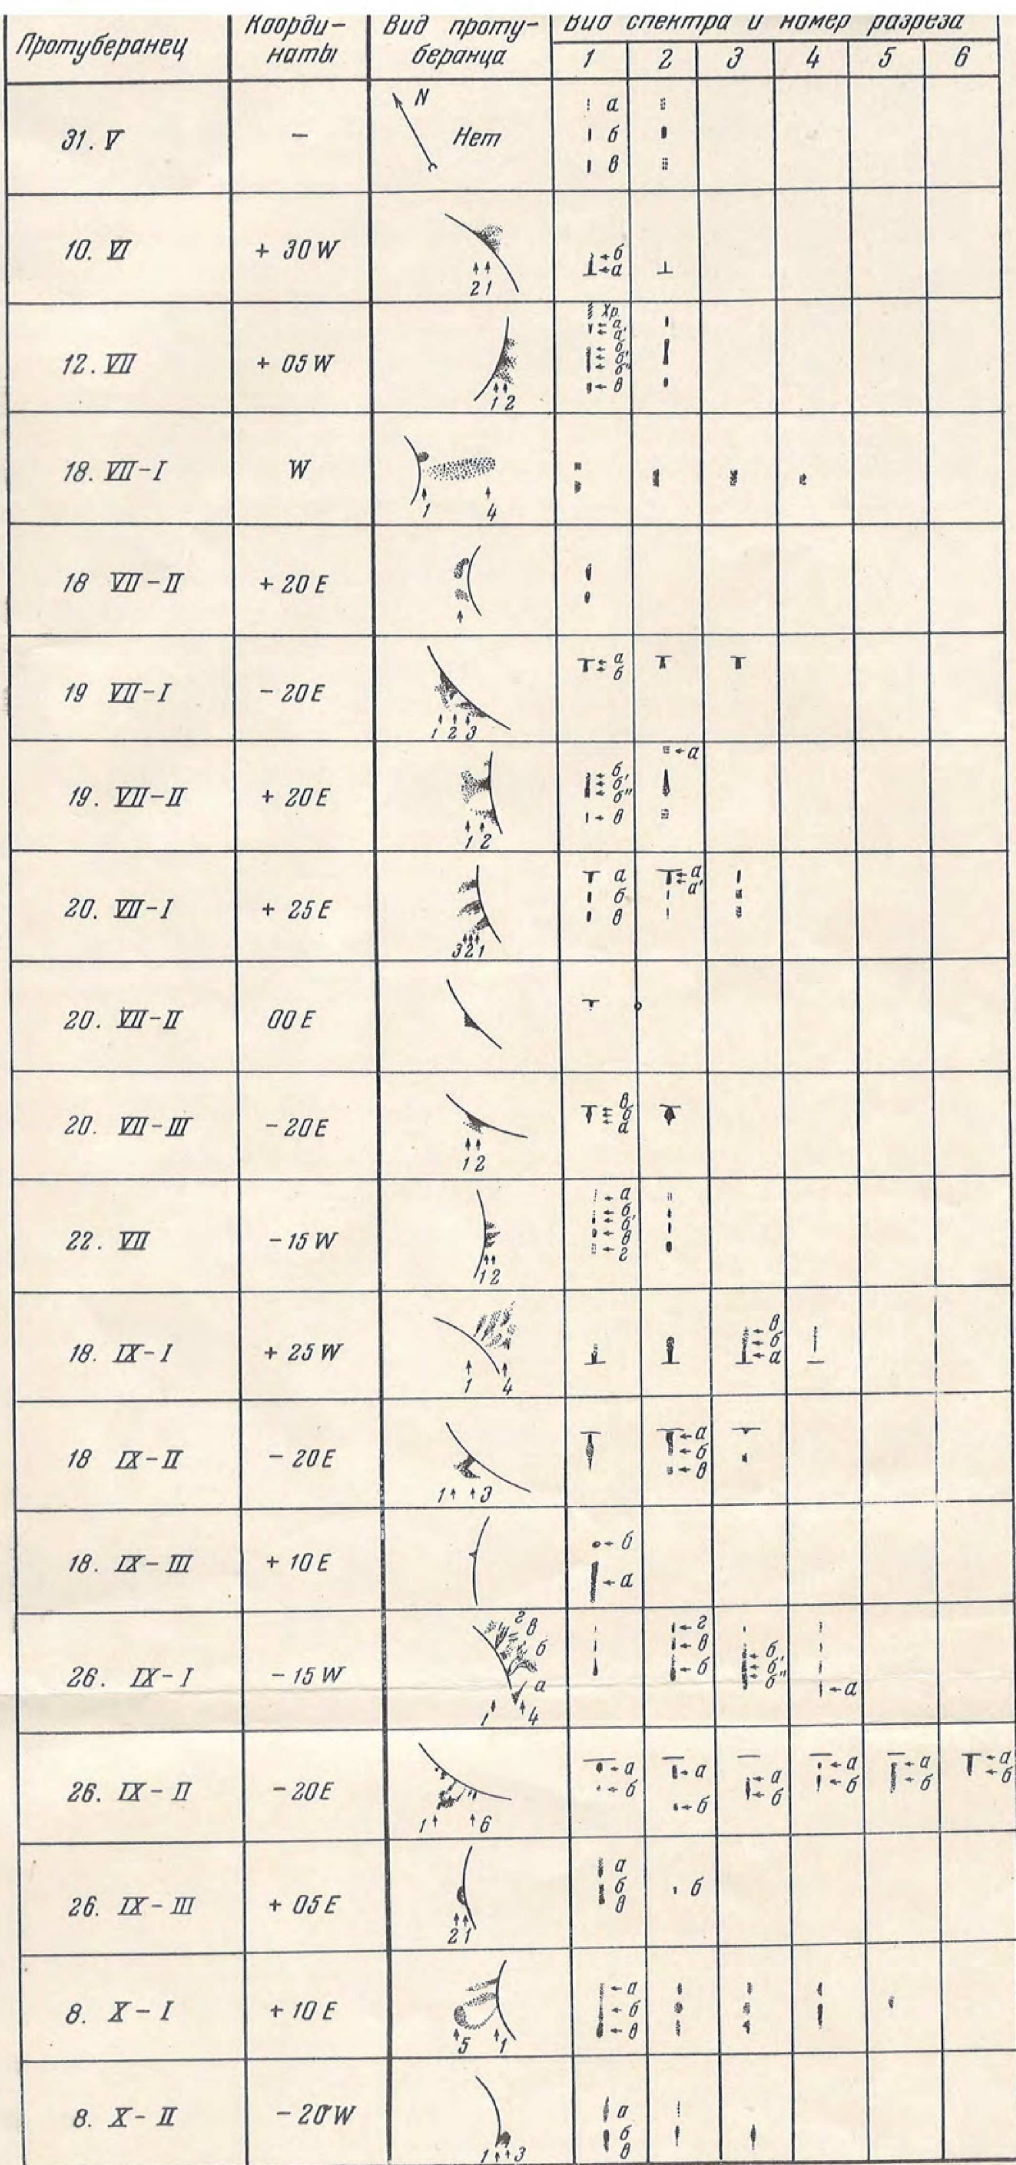 Протуберанец
Коорди-
наты
Вид проту-
беранца
Вид спектра и номер разреза
1 2 3 4 5 6
31. V
—
N
Нет
а
б
в
10. VI
+ 30 W
2 1
б
а
12. VII
+ 05 W
1 2
Хр.
а
а'
б
б'
б"
в
18. VII-I
W
1 4
18 VII-II
+ 20 E
19 VII-I
- 20 E
1 2 3
а
б
19. VII-II
+ 20 E
1 2
б
б'
б"
в
а
20. VII-I
+ 25 E
3 2 1
а
б
в
а
а'
20. VII-II
00 E
20. VII-III
- 20 E
1 2
в
б
а
22. VII
- 15 W
1 2
а
б
б'
в
г
18. IX-I
+ 25 W
1 4
в
б
а
18 IX-II
- 20 E
1 3
а
б
в
18. IX-III
+ 10 E
б
а
26. IX-I
- 15 W
г
в
б
а
1 4
г
в
б
б
б'
б"
а
26. IX-II
- 20 E
1 6
а
б
а
б
а
б
а
б
а
б
а
б
26. IX-III
+ 05 E
2 1
а
б
в
б
8. X-I
+ 10 E
5 1
а
б
в
8. X-II
- 20 W
1 3
а
б
в